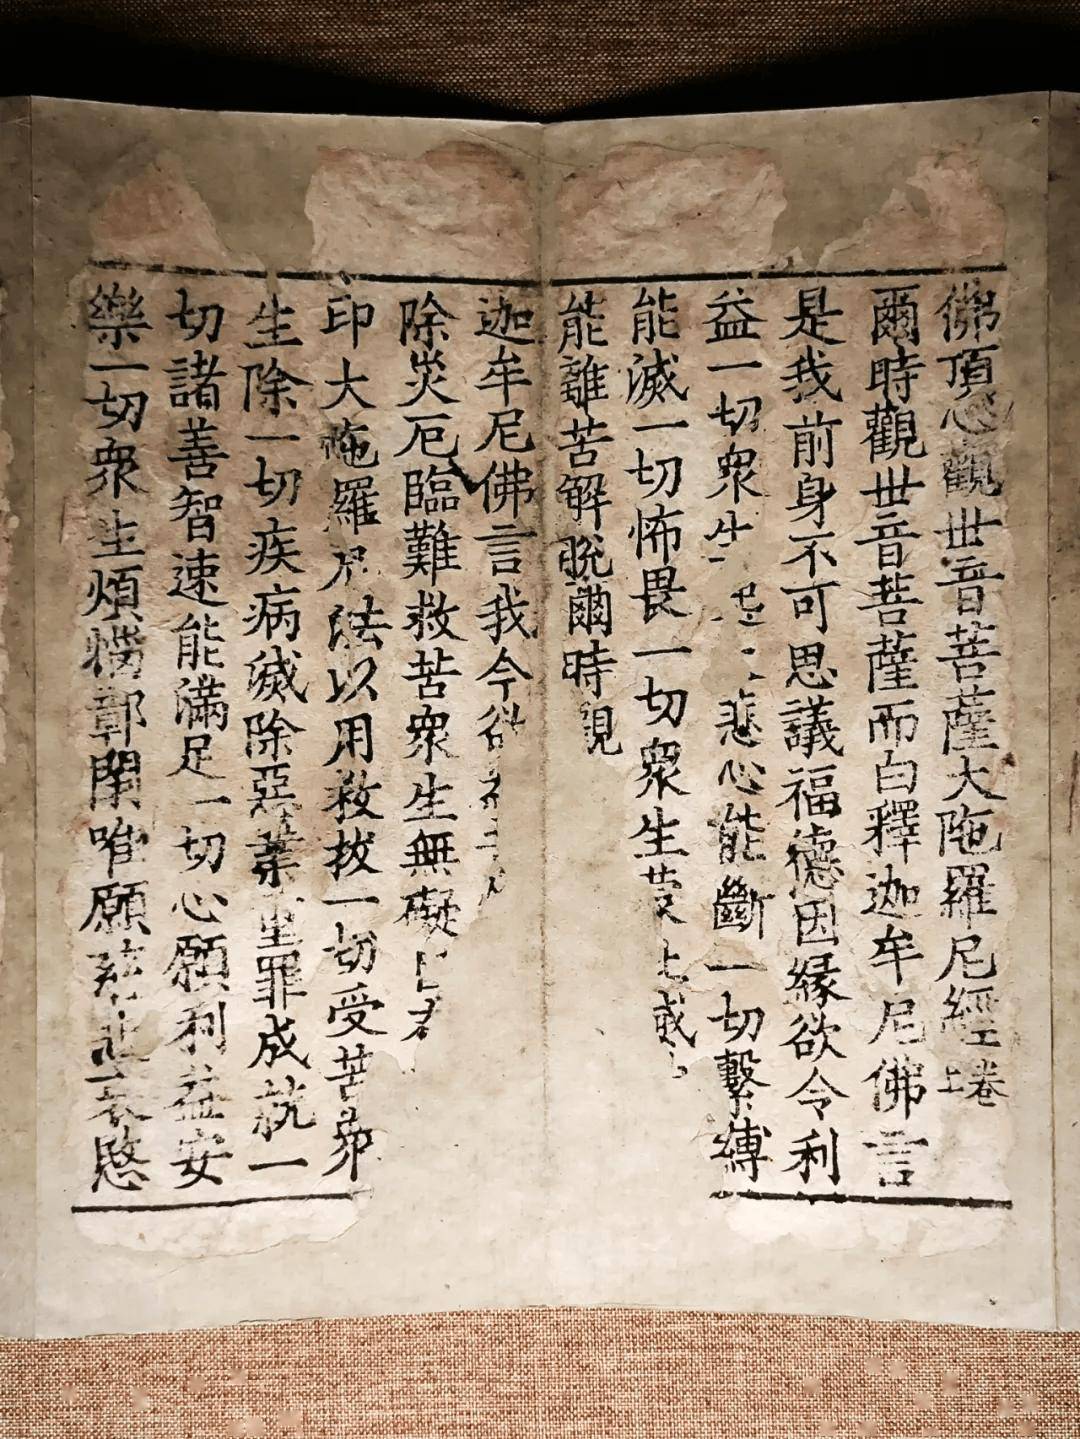 佛頂心觀世音菩薩大陁羅尼經卷上
爾時觀世音菩薩而白釋迦牟尼佛言
是我前身不可思議福德因緣欲令利
益一切衆生起悲心能斷一切繫縛
能滅一切怖畏一切衆生蒙此威
能離苦解脫爾時觀
迦牟尼佛言我今欲
除灾厄臨難救苦衆生無礙
印大陁羅尼法以用救拔一切受苦衆
生除一切疾病滅除惡業重罪成就一
切諸善智速能滿足一切心願利益安
樂一切衆生煩惱鄣閡唯願慈悲哀愍